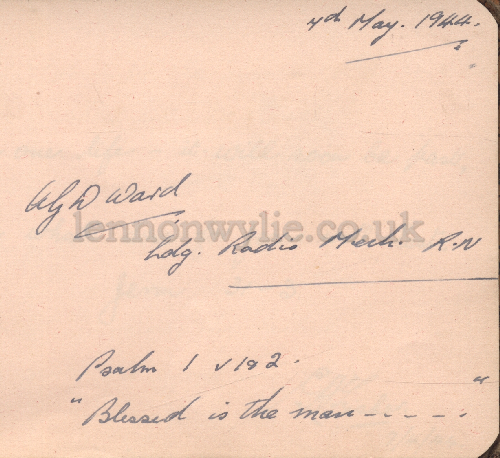 May. 1944.
Ward
lennonwylie.co.uk
Ldg. Radio Mech. R.N
Psalm 1 v 1 & 2.
"Blessed is the man - - - - . "